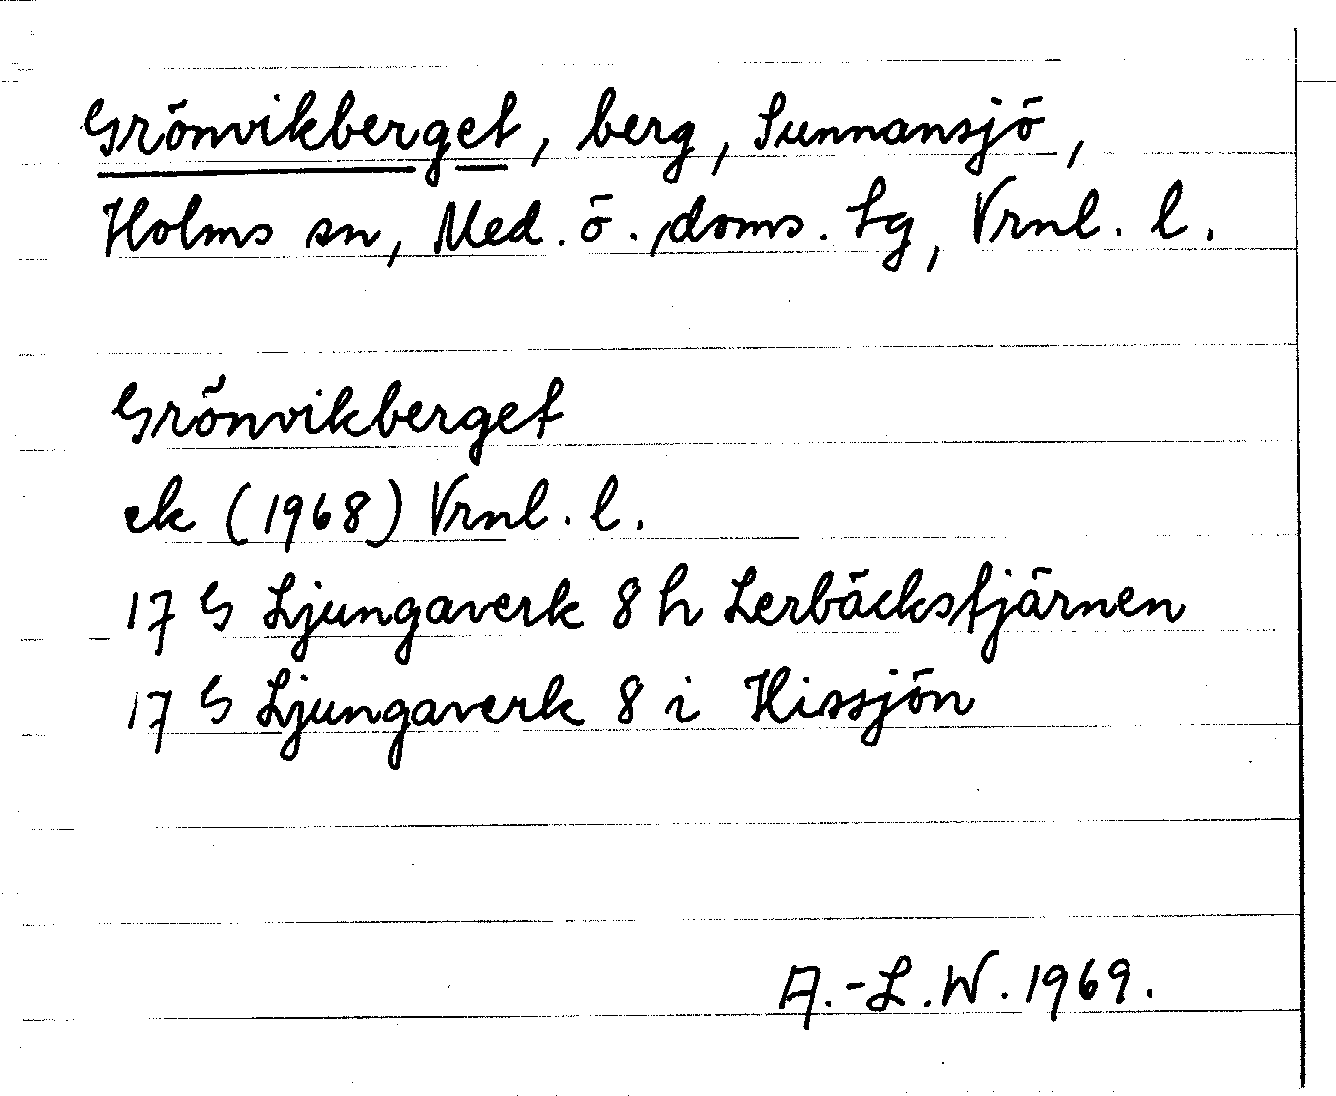 Grönvikberget, berg, Sunnansjö,
Holms sn, Med. ö. doms. tg, Vrnl. l.
Grönvikberget
ek (1968) Vrnl. l.
17 G Ljungaverk 8 h Lerbäckstjärnen
17 G Ljungaverk 8 i Hissjön
A.-L.W. 1969.